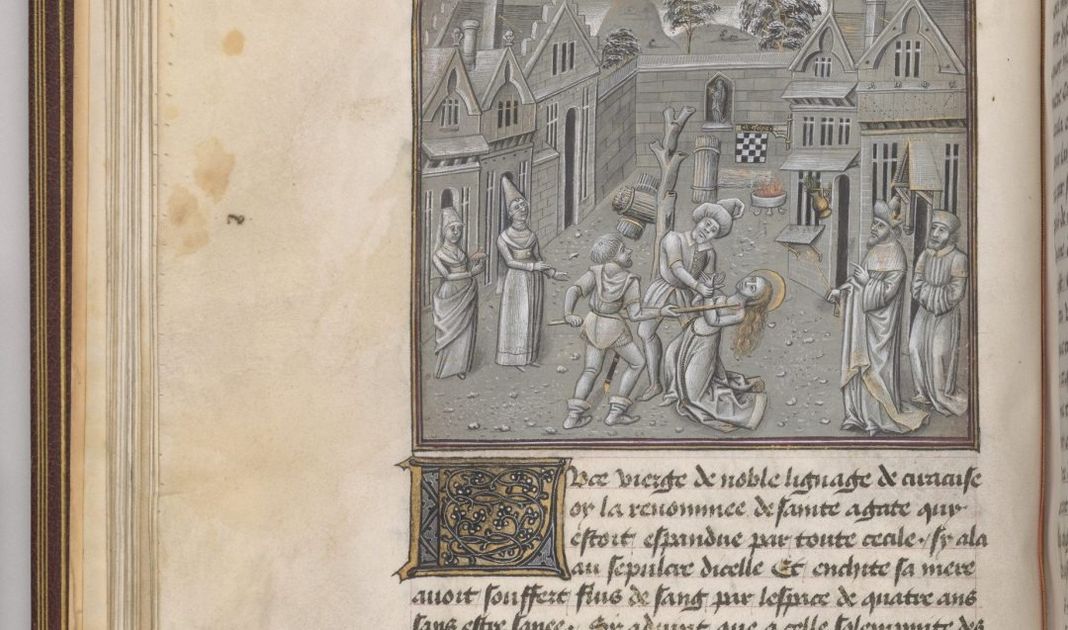 Uce vierge de noble lignage de ciracuse
or la renommee de sainte agate qui
estoit espandue par toute cecile. sy ala
au sepulcre dicelle Et enchite sa mere
auoit souffert flus de sang par lespace de quatre ans
sans estre sanee. Sy aduint que a celle solemnite des